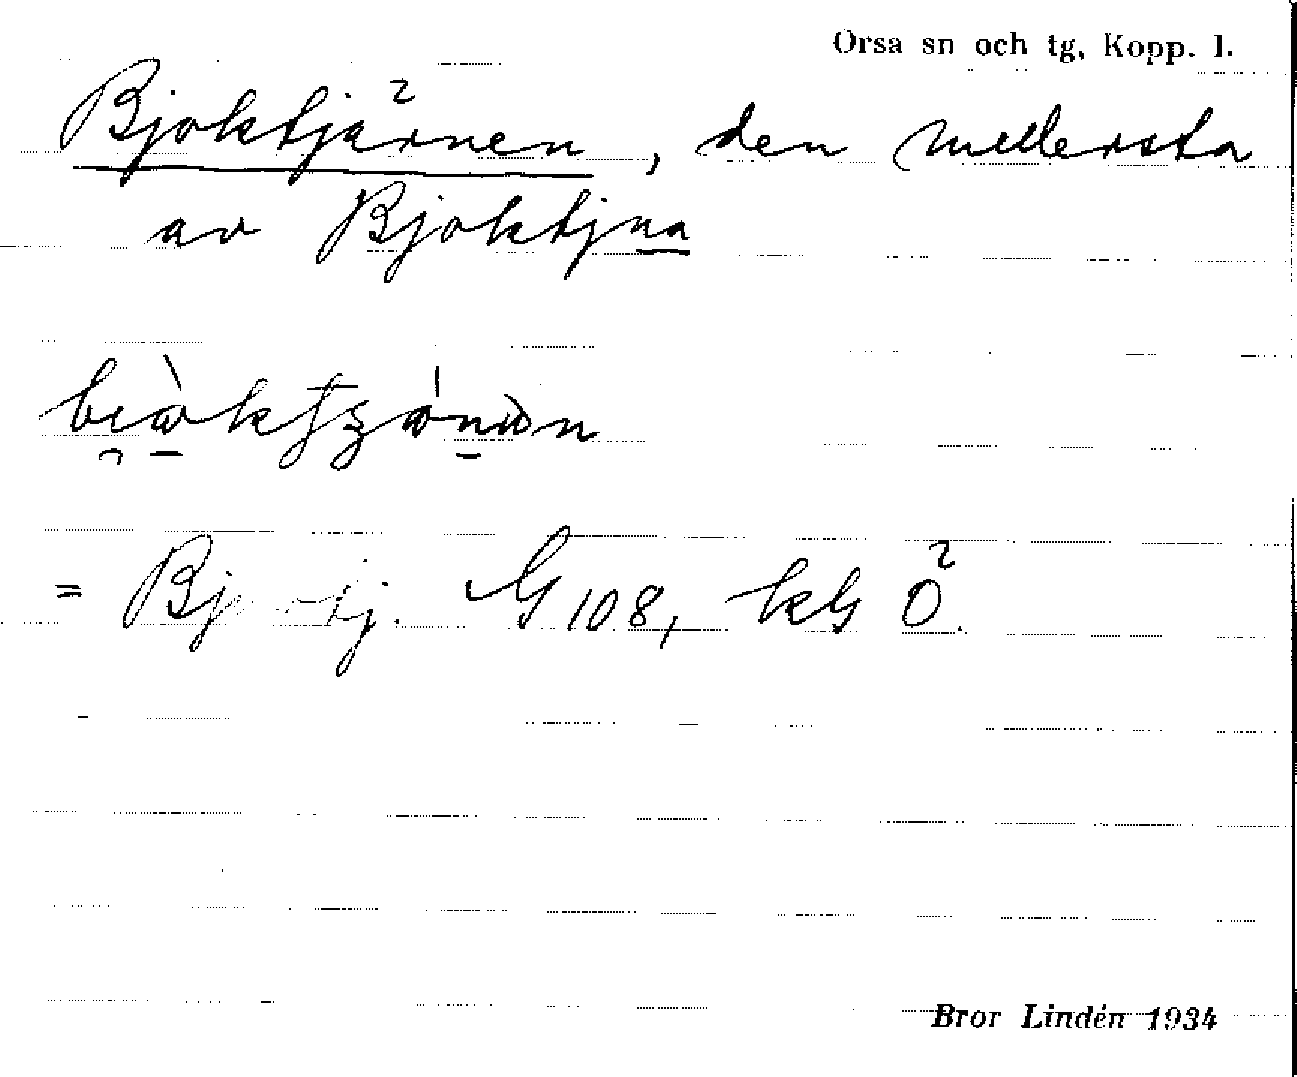 Orsa sn och tg, Kopp. l.
Bjoktjärnen, den mellersta
av Bjoktjna
= Bj tj. G 108, kG Ö.
Bror Lindén 1934